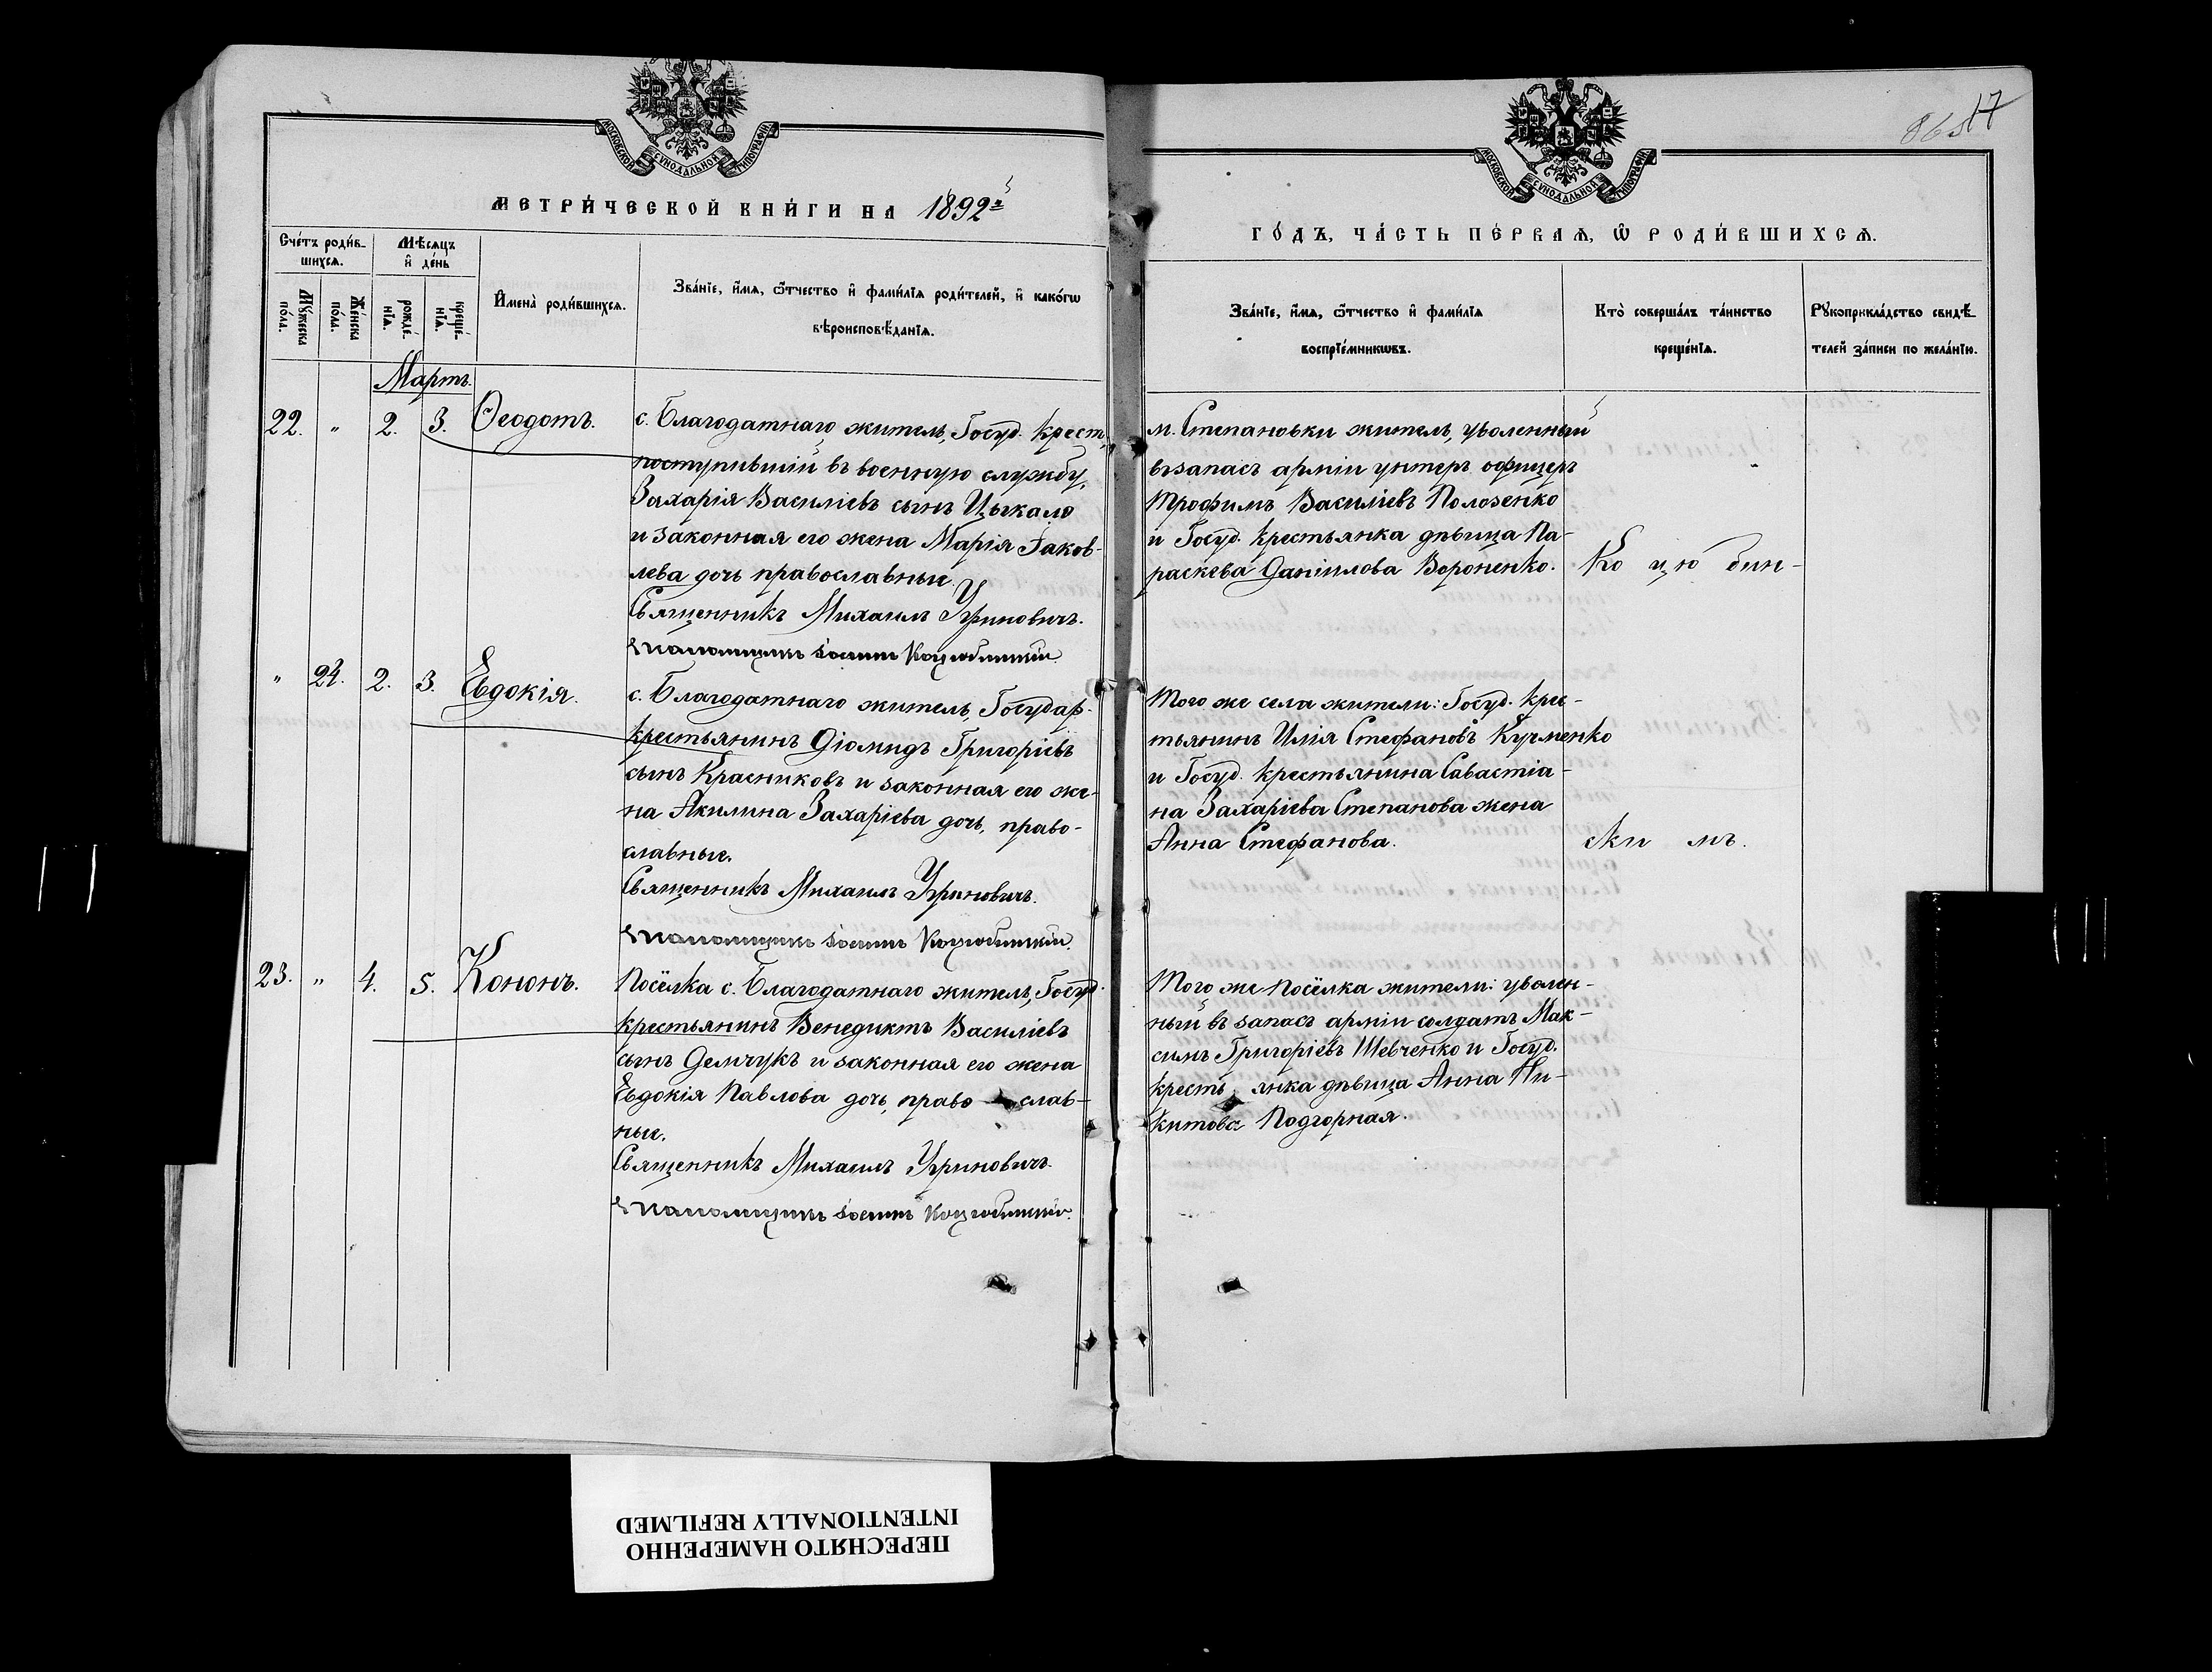 МОСКОВСКОЙ СѴНОДАЛЬНОЙ ТИПОГРАФІИ
МЕТРИ́ЧЕСКОЙ КНИ́ГИ НА 1892й
Сче́тъ роди́в-
шихсѧ.
Мѣ́сѧцъ
и҆ де́нь
Мꙋ́жеска
по́ла.
Же́нска
по́ла.
рожде́-
нїѧ.
креще́-
нїѧ.
И҆мена̀ роди́вшихсѧ.
Зва́нїе, и҆́мѧ, ѻ҆́тчество и҆ фами́лїѧ роди́телей, и҆ како́гѡ
вѣроисповѣ́данїѧ.
Мартъ.
22. " 2. 3. Ѳеодотъ.
с. Благодатнаго житель, Госуд. крест.
поступившій въ военную службу,
Захарія Василіевъ сынъ Цыкало
и законная его жена Марія Іаков-
лева дочь православные.
Священникъ Михаилъ Угриновичъ.
Псаломщикъ Коцюбинскій.
" 24. 2. 3. Евдокія.
с. Благодатнаго житель, Государ.
крестьянинъ Діомидъ Григоріевъ
сынъ Красниковъ и законная его же-
на Акилина Захаріева дочь, право-
славные.
Священникъ Михаилъ Угриновичъ.
Псаломщикъ Коцюбинскій.
23. " 4. 5. Кононъ.
Посёлка с. Благодатнаго житель, Госуд.
крестьянинъ Венедиктъ Василіевъ
сынъ Демчукъ и законная его жена
Евдокія Павлова дочь, право-слав-
ные.
Священникъ Михаилъ Угриновичъ.
Псаломщикъ Коцюбинскій.
17
МОСКОВСКОЙ СѴНОДАЛЬНОЙ ТИПОГРАФІИ
ГО́ДЪ, ЧА́СТЬ ПЕ́РВАѦ, Ѡ҆ РОДИ́ВШИХСѦ.
Зва́нїе, и҆́мѧ, ѻ҆́тчество и҆ фами́лїѧ
воспрїе́мникѡвъ.
Кто̀ соверша́лъ та́инство
креще́нїѧ.
Рꙋкоприкла́дство свидѣ́-
телей за́писи по жела́нїю.
м. Степановки житель, уволенный
въ запасъ арміи унтеръ офицеръ
Трофимъ Василіевъ Полозенко
и Госуд. крестьянка дѣвица Па-
раскева Даніилова Вороненко.
Ко цю бин-
Того же села жители: Госуд. крес-
тьянинъ Илія Стефановъ Кучменко
и Госуд. крестьянина Савастіа-
на Захаріева Степанова жена
Анна Стефанова.
ски мъ.
Того же посёлка жители: уволен-
ный въ запасъ арміи солдатъ Мак-
симъ Григоріевъ Шевченко и Госуд.
кресть янка дѣвица Анна Ни-
китова Подгорная.
ПЕРЕСНЯТО НАМЕРЕННО
INTENTIONALLY REFILMED